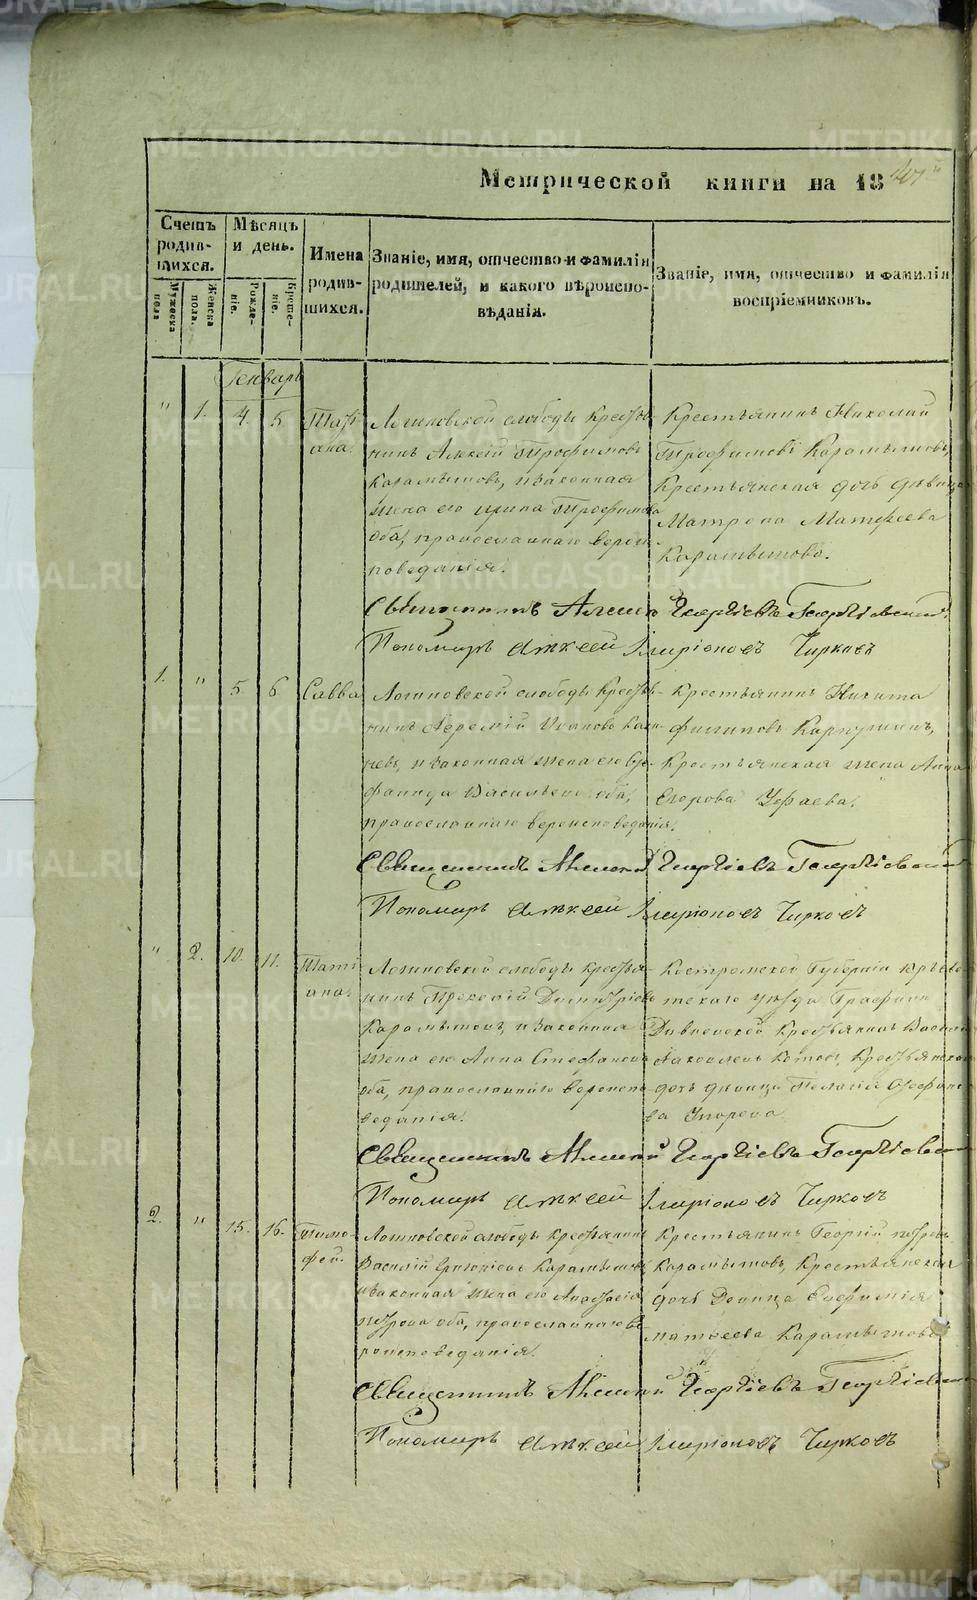 Метрической книги на 18
Счетъ родив-шихся.
Мѣсяцъ и день.
Имена родив-шихся.
Званіе, имя, отчество и фамилія родителей, и какого вѣроиспо-вѣданія.
Званіе, имя, отчество и фамилія воспріемниковъ.
Мужеска пола
Женска пола.
Рожде-ніе.
Креще-ніе.
Генварь
" 1. 4. 5
Тати
ана.
Логиновской слободы кресть
нинъ Алексій Трофимовъ
Карамышовъ, и законная
жена его Ирина Трофимова
оба, православнаго верои-
поведанія.
Крестьянинъ Николай
Трофимовъ Карамышовъ,
Крестьянская дочь девица
Матрона Матфеева
Карамышова.
Священникъ Алексій Георгіевъ Георгіевскій
Пономарь Алексей Иларіоновъ Чирковъ
1. " 5 6.
Савва
Логиновской слободы Кресть-
нинъ Іеремій Ивановъ
и законная жена его
Васильева оба,
православнаго вероисповеданія.
Крестьянинъ Никита
Филиповъ Карпушинъ,
Крестьянская жена Анна
Егорова
Священникъ Алексій Георгіевъ Георгіевскій
Пономарь Алексей Иларіоновъ Чирковъ
" 2. 10. 11.
Тати
ана.
Логиновской слободы кресть-
нинъ Прокопій Димитріевъ
Карамышовъ, и законная
жена его Анна Стефанова
оба, православнаго вероиспо-
веданія.
Костромской Губерніи Юрьево-
тскаго уезда Графини
Крестьянинъ
Крестьянская
дочь девица Пелагія
ва
Священникъ Алексій Георгіевъ Георгіевскій
Пономарь Алексей Иларіоновъ Чирковъ
2. " 15. 16.
Тимо-
фей.
Логиновской слободы крестьянинъ
Василій Григорьевъ Карамышевъ
и законная жена его Анастасія
Петрова оба, православнаго ве-
роисповеданія.
Крестьянинъ Георгій Петровъ
Карамышовъ, Крестьянская
дочь Девица Евфимія
Матвеева Карамышова
Священникъ Алексій Георгіевъ Георгіевскій
Пономарь Алексей Иларіоновъ Чирковъ
METRIKI.GASO-URAL.RU